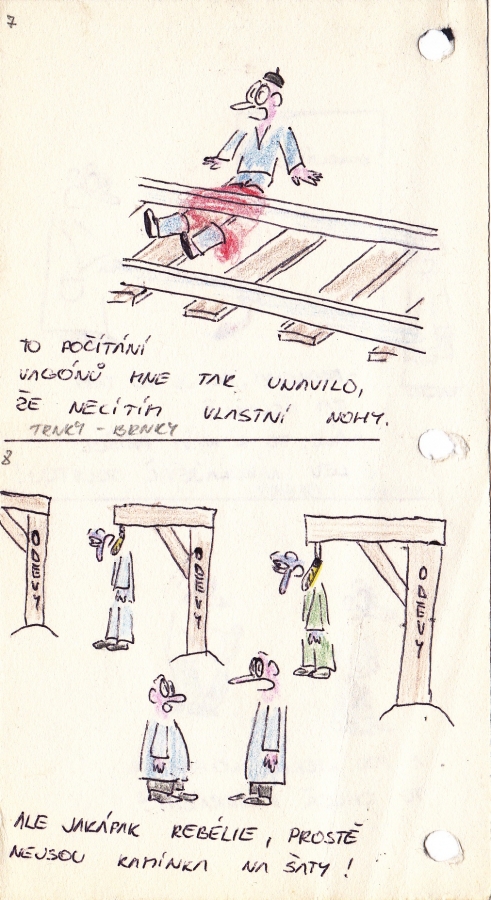 7
TO POČÍTÁNÍ
VAGÓNŮ MNE TAK UNAVILO,
ŽE NECÍTÍM VLASTNÍ NOHY.
TRNKY - BRNKY
8
ODĚVY
ODĚVY
ODĚVY
ALE JAKÁPAK REBÉLIE, PROSTĚ
NEJSOU RAMÍNKA NA ŠATY!